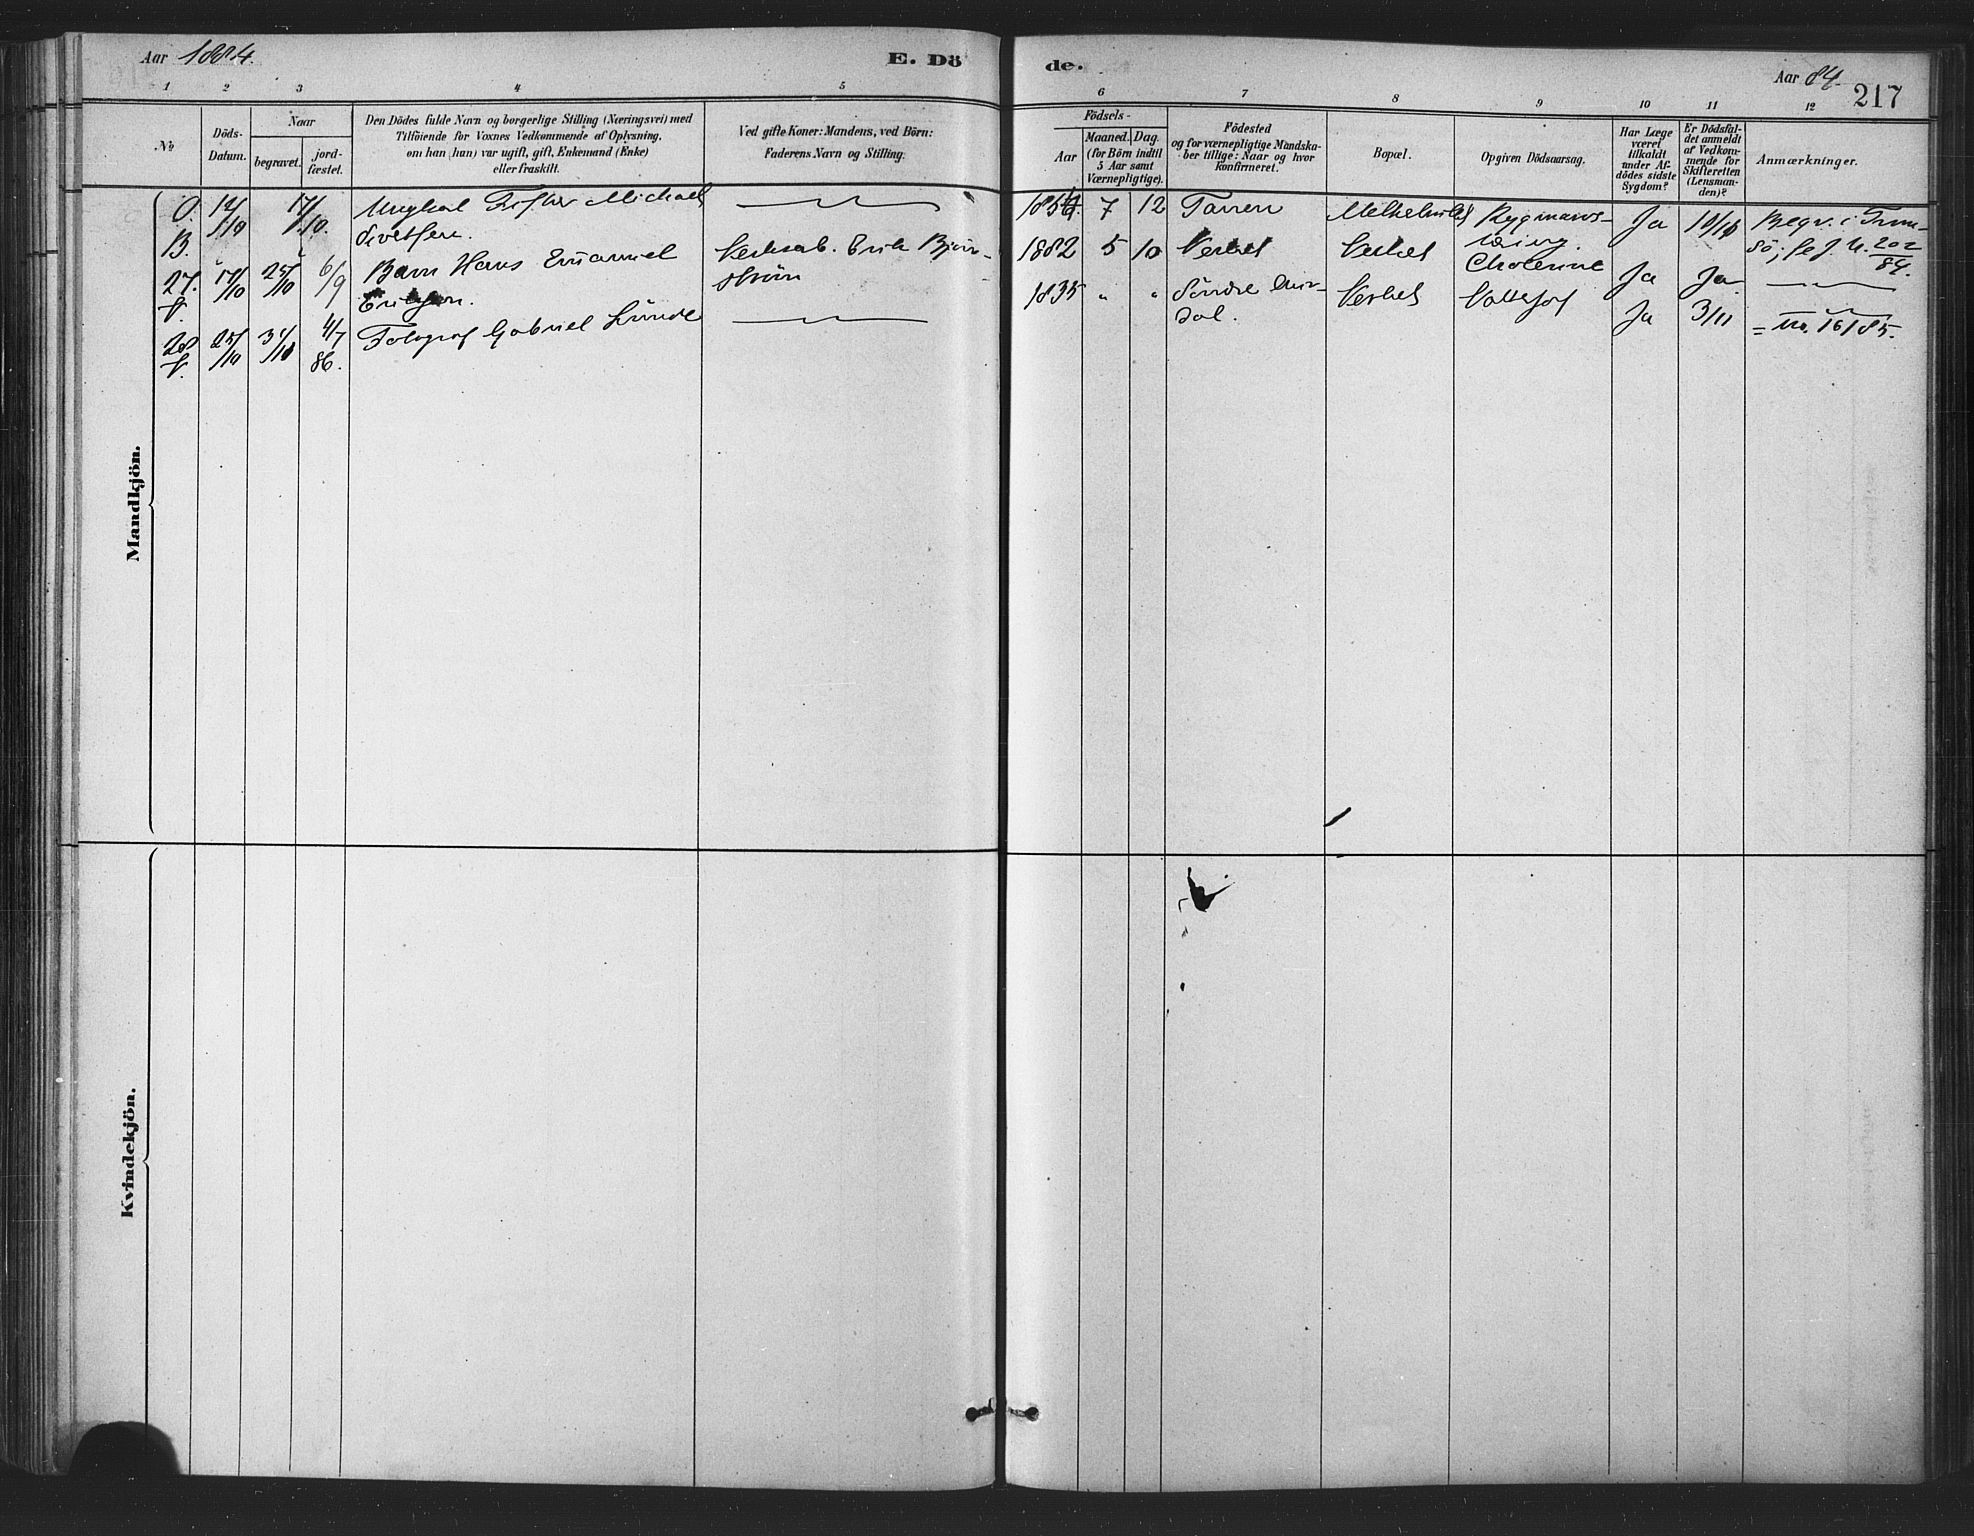 Aar 1884.
E. Dö
de.
Aar 84.
217
1 2 3 4 5 6 7 8 9 10 11 12
No
Döds-
Datum.
Naar
begravet.
jord-
fæstet.
Den Dödes fulde Navn og borgerlige Stilling (Næringsvei) med
Tilföiende for Voxnes Vedkommende af Oplysning,
om han (hun) var ugift, gift, Enkemand (Enke)
eller fraskilt.
Ved gifte Koner: Mandens, ved Börn:
Faderens Navn og Stilling.
Födsels-
Aar
Maaned.
Dag.
(for Börn indtil
5 Aar samt
Værnepligtige).
Födested
og for værnepligtige Mandska-
ber tillige: Naar og hvor
konfirmeret.
Bopæl.
Opgiven Dödsaarsag.
Har Læge
været
tilkaldt
under Af-
dödes sidste
Sygdom?
Er Dödsfal-
det anmeldt
af Vedkom-
mende for
Skifteretten
(Lensman-
den)?
Anmærkninger.
Mandkjön.
O.
B.
12/10
17/10.
Ungkarl Michael
Sivertsen.
7 12
Ja
Begr. i Trom-
sö; 202
84.
27.
17/10
25/10
6/9
Barn Hans Emanuel
Erikson.
Verksarb. Erik Björn-
ström
1882 5 10
Verket
Verket
Cholerine
Ja
Ja
28
25/10
31/10
4/7
86.
Fotograf Gabriel Lunde
1835 " "
Söndre
dal.
Verket
Ja
3/11
= No. 16/85.
Kvindekjön.